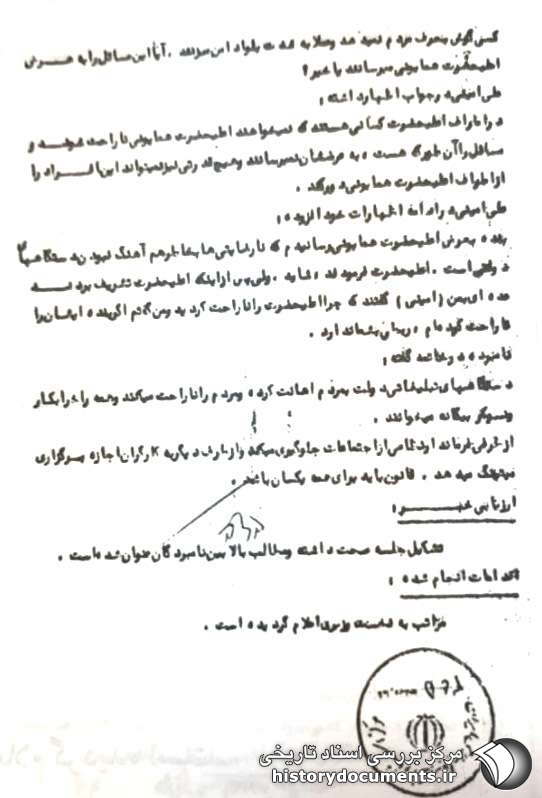 کسی گوش بحرف مردم نمیدهد و
اعلیحضرت همایونی میرسانند یا خیر؟
علی امینی در جواب اظهار داشته:
در اطراف اعلیحضرت کسانی هستند که نمیخواهند اعلیحضرت همایونی ناراحت شوند و
مسائل را آن طوری که هست به عرضشان نمیرسانند و هیچ قدرتی نیز نمیتواند این افراد را
از اطراف اعلیحضرت همایونی دور کند.
علی امینی در ادامه اظهارات خود افزوده:
بنده بعرض اعلیحضرت همایونی رسانیدم که نارضایتی ها بخاطر هم آهنگ نبودن دستگاههای
دولتی است. اعلیحضرت فرمودند شاید. ولی پس از اینکه اعلیحضرت تشریف بردند
عده ای بمن (امینی) گفتند که چرا اعلیحضرت را ناراحت کردید ومن گفتم اگر بنده ایشان را
ناراحت کرده ام
نامبرده در خاتمه گفته:
دستگاههای تبلیغاتی دولت بمردم اهانت کرده ومردم را ناراحت میکند وهمه را خرابکار
ونوکر بیگانه میخوانند.
از طرفی فرماندار نظامی از اجتماعات جلوگیری میکند واز طرف دیگر به کارگران اجازه برگزاری
میتینگ میدهد. قانون باید برای همه یکسان باشد.
ارزیابی خبر:
تشکیل جلسه صحت داشته ومطالب بالا بین نامبردگان عنوان شده است.
اقدامات انجام شده:
مراتب به نخست وزیری اعلام گردیده است.
مرکز بررسی اسناد تاریخی
historydocuments.ir